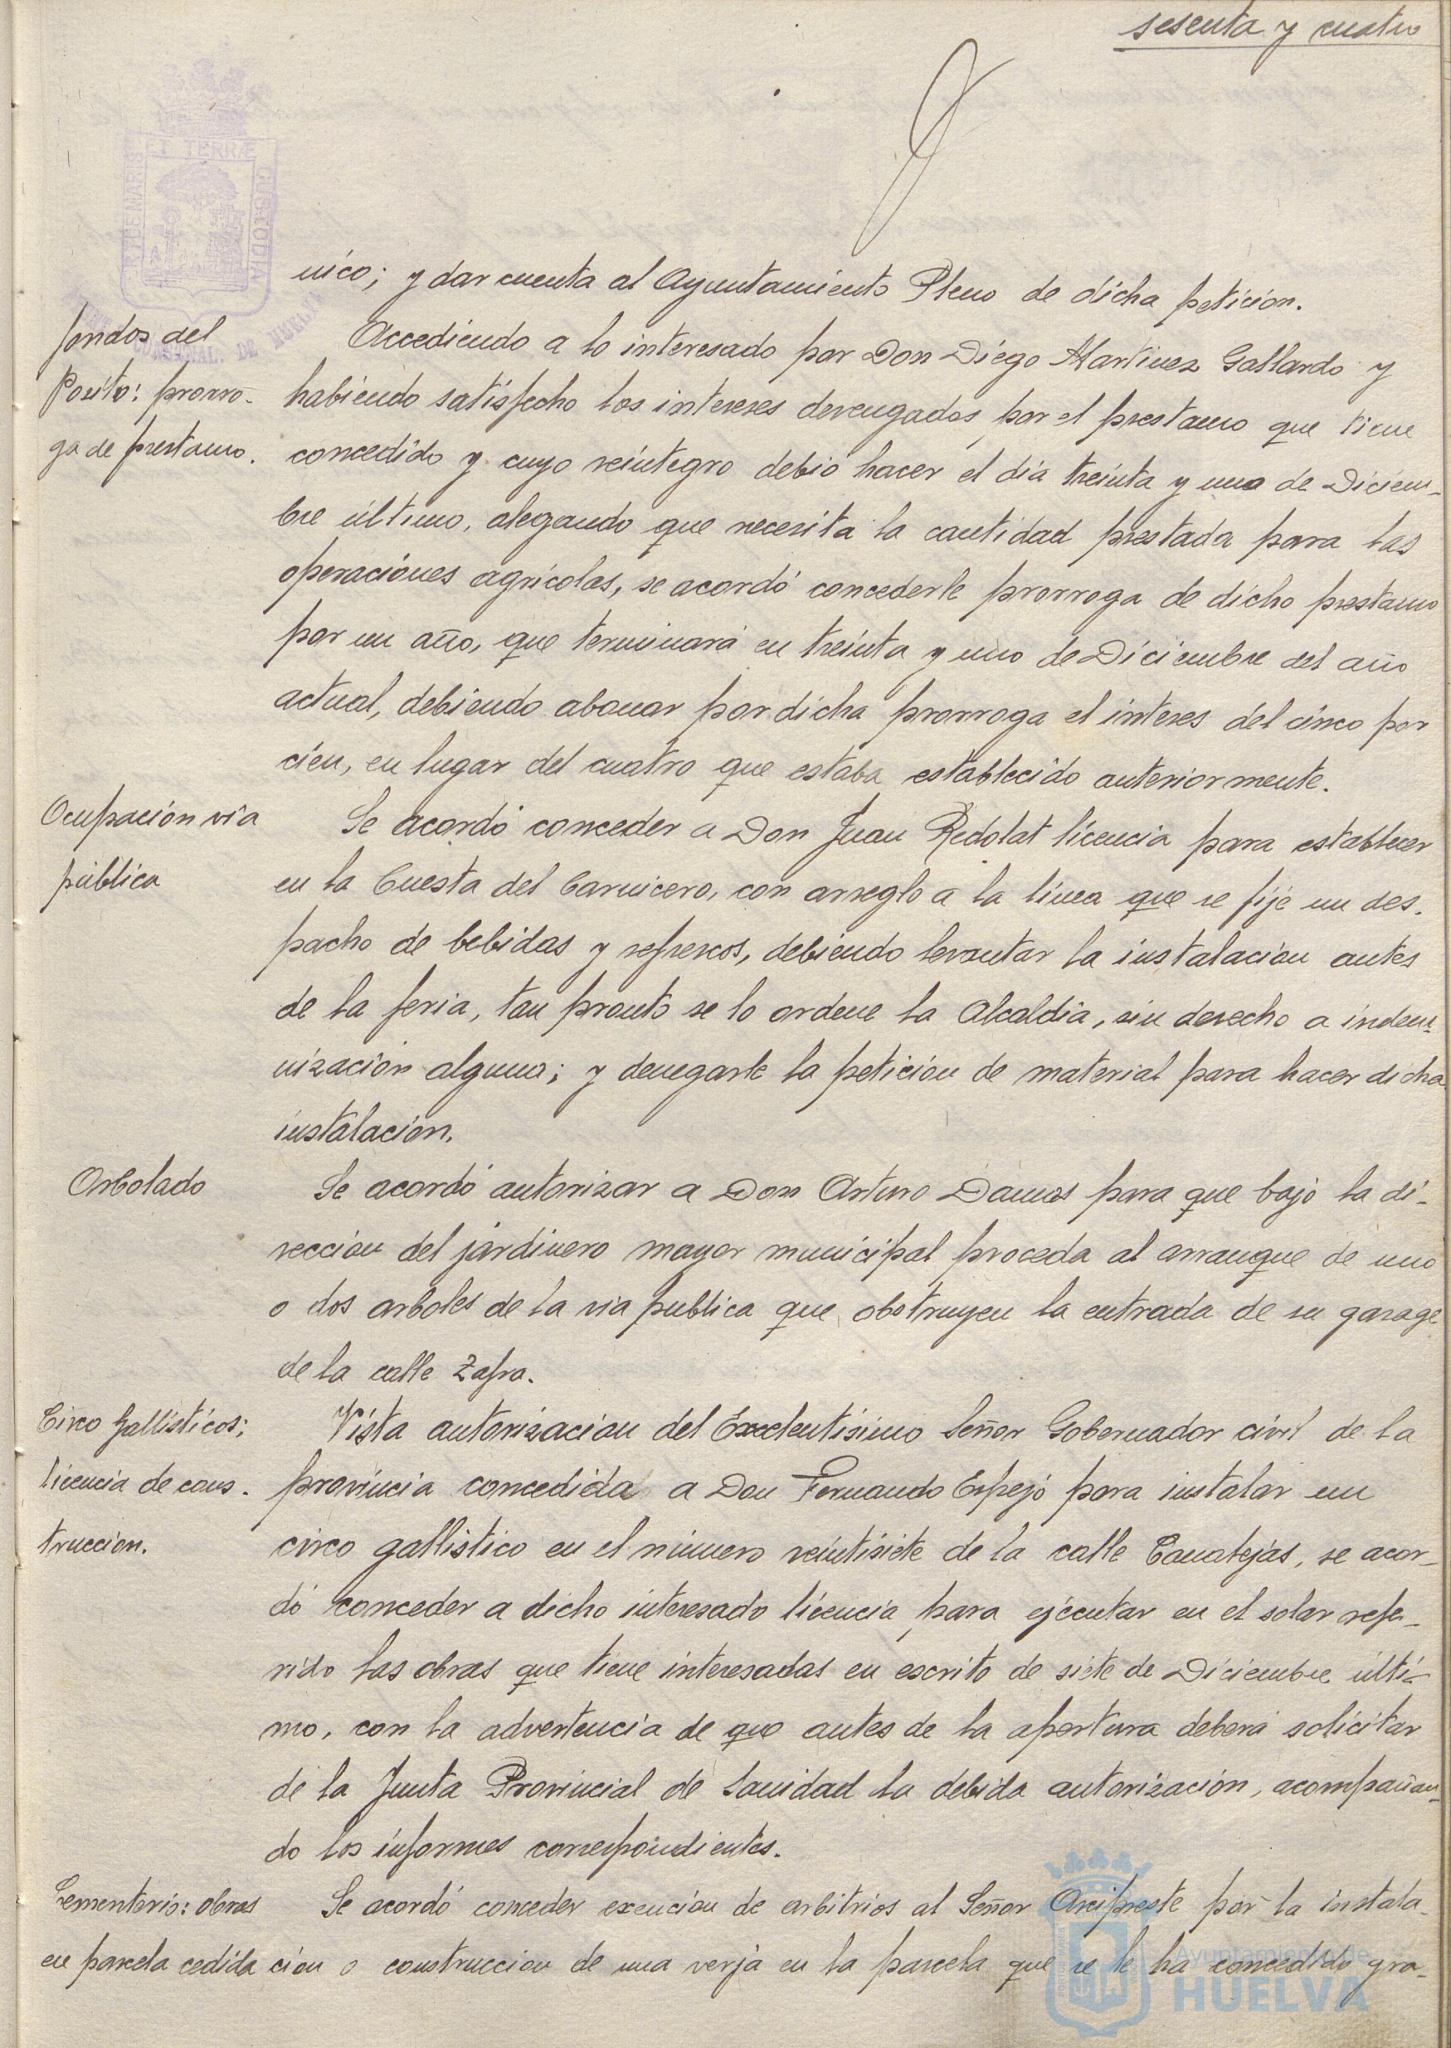 sesenta y cuatro
nico; y dar cuenta al Ayuntamiento Pleno de dicha petición.
fondos del
Posito: prorro-
ga de prestamo.
Accediendo a lo interesado por Don Diego Martinez Gallardo y
habiendo satisfecho los intereses devengados por el prestamo que tiene
concedido y cuyo reintegro debió hacer el dia treinta y uno de Diciem-
bre último, alegando que necesita la cantidad prestada para las
operaciones agrícolas, se acordó concederle prorroga de dicho prestamo
por un año, que terminará en treinta y uno de Diciembre del año
actual, debiendo abonar por dicha prorroga el interes del cinco por
cien, en lugar del cuatro que estaba establecido anteriormente.
Ocupación via
pública
Se acordó conceder a Don Juan Redolat licencia para establecer
en la Cuesta del Carnicero, con arreglo a la línea que se fije un des-
pacho de bebidas y refrescos, debiendo levantar la instalación antes
de la feria, tan pronto se lo ordene la Alcaldia, sin derecho a indem-
nización alguna; y denegarle la petición de material para hacer dicha
instalación.
Arbolado
Se acordó autorizar a Don Arturo Damas para que bajo la di-
reccion del jardinero mayor municipal proceda al arranque de uno
o dos arboles de la via publica que obstruyen la entrada de su garage
de la calle Zafra.
Circo Gallisticos;
licencia de cons-
truccion.
Vista autorizacion del Excelentísimo Señor Gobernador civil de la
provincia concedida a Don Fernando Espejo para instalar un
circo gallistico en el número veintisiete de la calle Canalejas, se acor-
dó conceder a dicho interesado licencia para ejecutar en el solar refe-
rido las obras que tiene interesadas en escrito de siete de Diciembre últi-
mo, con la advertencia de que antes de la apertura deberá solicitar
de la Junta Provincial de Sanidad la debida autorización, acompañan-
do los informes correspondientes.
Cementerio: obras
en parcela cedida
Se acordó conceder exencion de arbitrios al Señor Arcipreste por la instala-
cion o construccion de una verja en la parcela que se le ha concedido gra-
ET TERRÆ
CUSTODIA
Ayuntamiento de
HUELVA